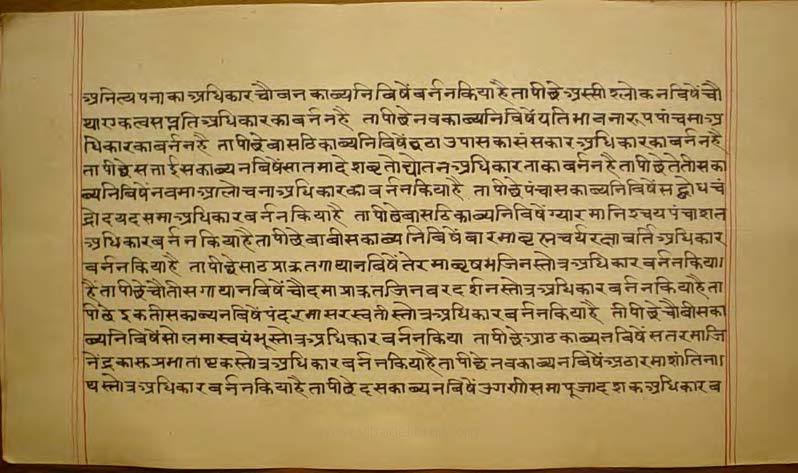 अनित्यपनाका अधिकार चौबन काव्यनिबिषें बर्ननकियाहै तापीछे अस्सी श्लोकनबिषें चौ
था एकत्वसप्नति अधिकारका बर्ननहै तापीछे नवकाव्यनिबिषें यतिभावनारूप पांचमा अ
धिकारका बर्ननहै तापीछे बासठि काव्यनिबिषें छठा उपासकासंसकार अधिकारका बर्ननहै
तापीछे सत्ताईसकाव्यनबिषें सातमा देशब्रतोद्योतन अधिकारताका बर्ननहै तापीछे तेतीसका
व्यनिबिषें नवमा आलोचना अधिकारका बर्ननकियाहै तापीछे पंचासकाव्यनिबिषें सद्बोधचं
द्रोदय दसमा अधिकार बर्ननकियाहै तापीछे बासठि काव्यनिबिषें ग्यारमा निश्चयपंचाशत
अधिकार बर्ननकियाहै तापीछे बाबीसकाव्यनिबिषें बारमा ब्रह्मचर्यरक्षाबर्ति अधिकार
बर्ननकियाहै तापीछे साठ प्राकृतगाथानबिषें तेरमा ऋषभजिनस्तोत्र अधिकार बर्ननकिया।
हैं तापीछे चौतीसगाथानबिषें चौदमा प्राकृत जिनबरदर्शनस्तोत्र अधिकार बर्ननकियाहै ता
पीछे इकतीसकाव्यनबिषें पंदरमा सरस्वतीस्तोत्र अधिकार बर्ननकियाहै तीपीछे चौबीसका
व्यनिबिषें सोलमा स्वयंभूस्तोत्र अधिकार बर्ननकिया तापीछे आठकाव्यनबिषें सतरमा जि
नेंद्रका सुप्रभाताष्टकस्तोत्र अधिकार बर्ननकियाहै तापीछे नवकाव्यनबिषें अठारमा शांतिना।
थस्तोत्र अधिकार बर्ननकियाहै तापीछे दसकाव्यनबिषें उगणीसमा पूजाष्टक अधिकार ब